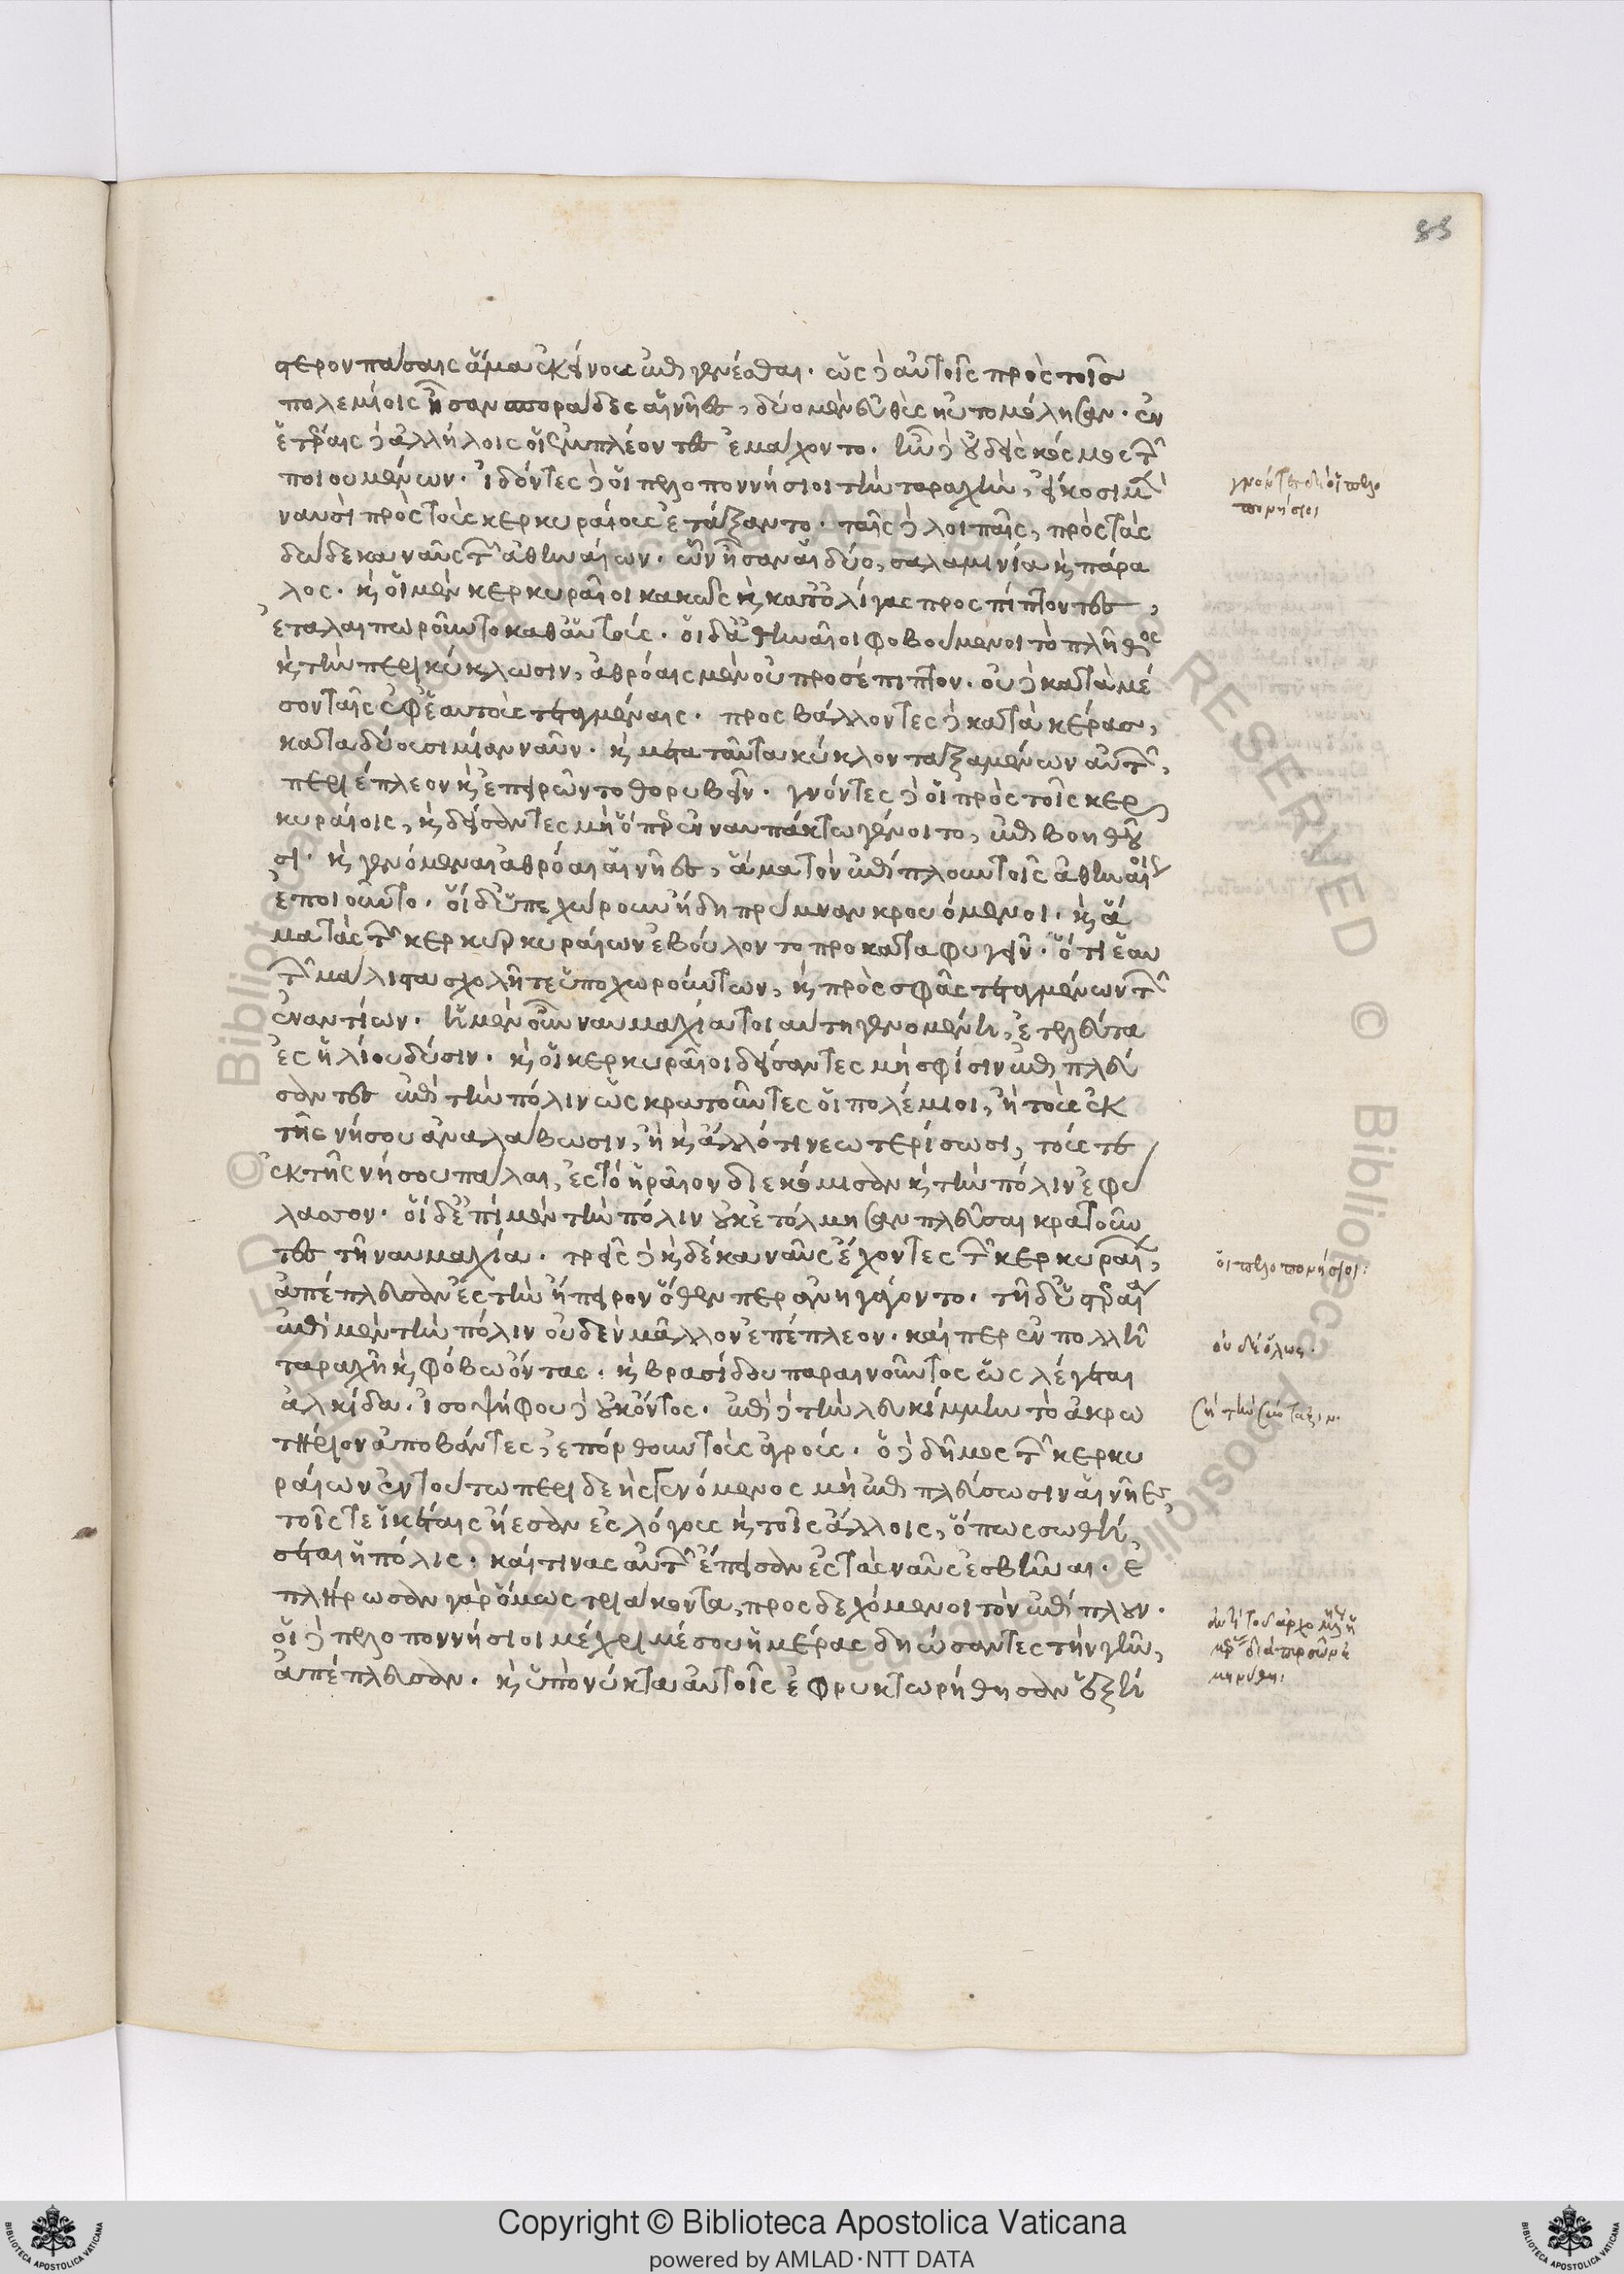 85
στερον πάσαις ἅμα ἐκείνους ἐπιγενέσθαι. ὡς δὲ αὐτοῖς πρὸς τοῖσ
πολεμίοις ἦσαν σποράδες αἱ νῆες, δύο μὲν εὐθὺς ηὐτομόλησαν. ἐν
ἑτέραις δὲ ἀλλήλοις οἱ ξυμπλέοντες ἐμάχοντο. ἦν δὲ οὐδεὶς κόσμος τῶν
ποιουμένων. ἰδόντες δὲ οἱ πελοποννήσιοι τὴν ταραχὴν, εἴκοσι μὲν
ναυσὶ πρὸς τοὺς κερκυραίους ἐτάξαντο. ταῖς δὲ λοιπαῖς, πρὸς τὰς
δώδεκα ναῦς τῶν ἀθηναίων. ὧν ἦσαν αἱ δύο, σαλαμινία καὶ πάρα
λος. καὶ οἱ μὲν κερκυραῖοι κακῶς καὶ κατ' ὀλίγας προσπίπτοντες,
ἐταλαιπωροῦντο καθ' αὑτούς. οἱ δ' ἀθηναῖοι φοβούμενοι τὸ πλῆθος
καὶ τὴν περικύκλωσιν, ἀθρόαις μὲν οὐ προσέπιπτον. οὐδὲ κατὰ μέ
σον ταῖς ἐφ' ἑαυτοὺς τεταγμέναις. προσβάλλοντες δὲ κατὰ κέρας,
καταδύουσι μίαν ναῦν. καὶ μετὰ ταῦτα κύκλον ταξαμένων αὐτῶν,
περιέπλεον καὶ ἐπειρῶντο θορυβεῖν. γνόντες δὲ οἱ πρὸς τοῖς κερ
κυραίοις, καὶ δείσαντες μὴ ὅπερ ἐν ναυπάκτω γένοιτο, ἐπιβοηθοῦ
σι. καὶ γενόμεναι ἀθρόαι αἱ νῆες, ἅμα τὸν ἐπίπλουν τοῖς ἀθηναίοις
ἐποιοῦντο. οἱ δ' ὑπεχώρουν ἤδη πρύμναν κρουόμενοι. καὶ ἅ
μα τὰς τῶν κερκυρκυραίων ἐβούλοντο προκαταφυγεῖν. ὅτι ἑαυ
τῶν μάλιστα σχολῆ τε ὑποχωρούντων, καὶ πρὸς σφᾶς τεταγμένων τῶν
ἐναντίων. ἡ μὲν οὖν ναυμαχία τοιαύτη γενομένη, ἐτελεύτα
ἐς ἡλίου δύσιν. καὶ οἱ κερκυραῖοι δείσαντες μὴ σφίσιν ἐπιπλεύ
σαντες ἐπὶ τὴν πόλιν ὡς κρατοῦντες οἱ πολέμιοι, ἢ τοὺς ἐκ
τῆς νήσου ἀναλάβωσιν, ἢ καὶ ἄλλό τι νεωτερίσωσι, τούς τε
ἐκ τῆς νήσου πάλαι, ἐς τὸ ἡραῖον διεκόμισαν καὶ τὴν πόλιν ἐφύ
λασσον. οἱ δ' ἐπὶ μὲν τὴν πόλιν οὐκ ἐτόλμησαν πλεῦσαι κρατοῦν
τες τῆ ναυμαχία. τρεῖς δὲ καὶ δέκα ναῦς ἔχοντες τῶν κερκυραίων,
ἀπέπλευσαν ἐς τὴν ἤπειρον ὅθεν περ ἀνηγάγοντο. τῆ δ' ὑστεραία
ἐπὶ μὲν τὴν πόλιν οὐδὲν μᾶλλον ἐπέπλεον. καίπερ ἐν πολλῆ
ταραχῆ καὶ φόβω ὄντας. καὶ βρασίδου παραινοῦντος ὡς λέγεται
ἀλκίδα. ἰσοψήφου δὲ οὐκ ὄντος. ἐπὶ δὲ τὴν λευκίμμην τὸ ἀκρω
τήριον ἀποβάντες, ἐπόρθουν τοὺς ἀγρούς. ὁ δὲ δῆμος τῶν κερκυ
ραίων ἐν τούτω περιδεὴς γενόμενος μὴ ἐπιπλεύσωσιν αἱ νῆες,
τοῖς τε ἱκέταις ἤεσαν ἐς λόγους καὶ τοῖς ἄλλοις, ὅπως σωθή
σεται ἡ πόλις. καί τινας αὐτῶν ἔπεισαν ἐς τὰς ναῦς ἐσβῆναι. ἐ
πλήρωσαν γὰρ ὅμως τριάκοντα, προσδεχόμενοι τὸν ἐπίπλουν.
οἱ δὲ πελοποννήσιοι μέχρι μέσου ἡμέρας δηώσαντες τὴν γῆν,
ἀπέπλευσαν. καὶ ὑπὸ νύκτα αὐτοῖς ἐφρυκτωρήθησαν ἑξή
γνόντες δὲ οἱ πελο
πονήσιοι
οἱ πελοπονήσιοι:
οὐδ' ὅλως.
μηρύθη:
© Biblioteca Apostolica Vaticana
RESERVED
Copyright © Biblioteca Apostolica Vaticana
powered by AMLAD·NTT DATA
BIBLIOTECA APOSTOLICA VATICANA
BIBLIOTECA APOSTOLICA VATICANA